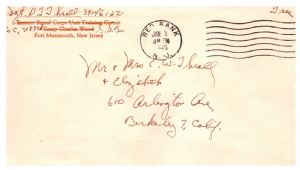 Sgt. D. T. Thrall 39146122
Eastern Signal Corps Unit Training Center
Camp Charles Wood
Fort Monmouth, New Jersey
RED BANK
JAN 3
N.J.
Free
Mr & Mrs E. W. Thrall
& Elizabeth
610 Arlington Ave
Berkeley 7, Calif.